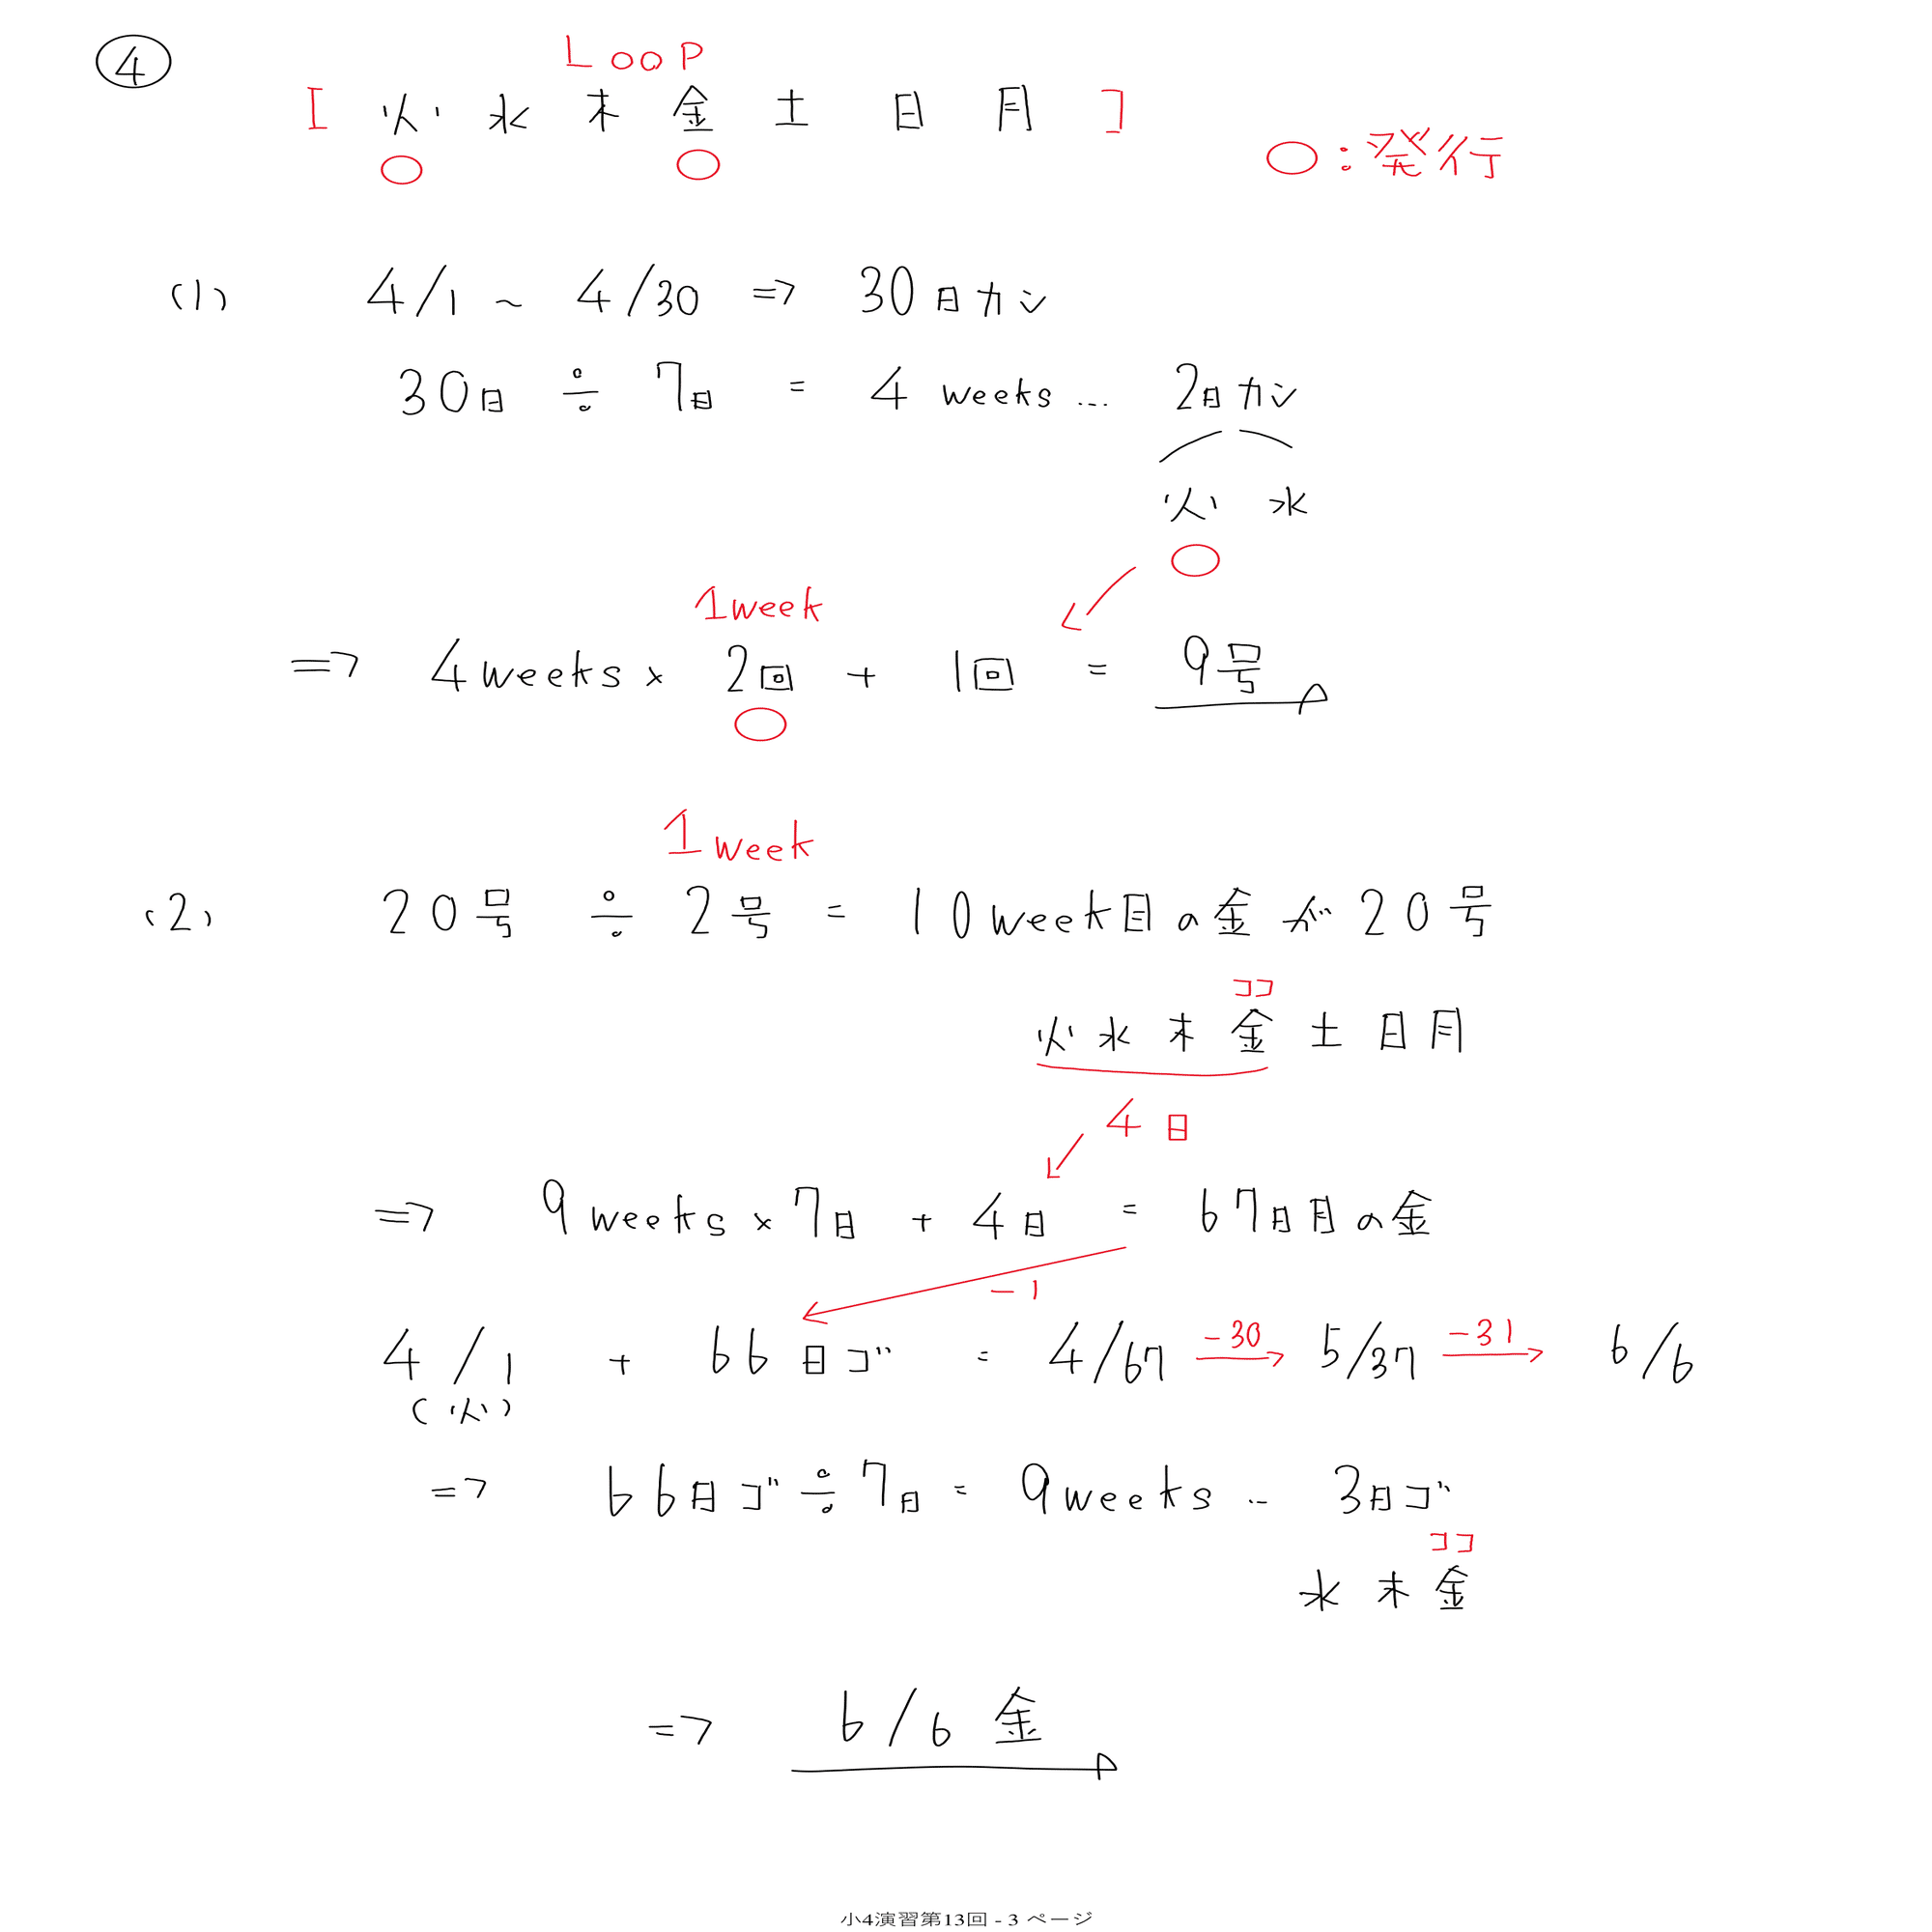 ④
LOOP
[ 火 水 木 金 土 日 月 ]
○ ○ ○:発行
(1) 4/1 ~ 4/30 ⇒ 30日カン
30日 ÷ 7日 = 4 weeks … 2日カン
火 水
○
1week
⇒ 4weeks × 2回 + 1回 = 9号
○
1week
(2) 20号 ÷ 2号 = 10week目の金が20号
ココ
火 水 木 金 土 日 月
4日
⇒ 9weeks × 7日 + 4日 = 67日目の金
-1
4/1 + 66日ゴ = 4/67 -30→ 5/37 -31→ 6/6
(火)
⇒ 66日ゴ ÷ 7日 = 9weeks … 3日ゴ
ココ
水 木 金
⇒ 6/6 金
小4演習第13回 - 3 ページ